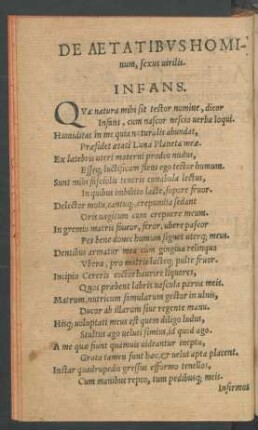 DE AETATIBVS HOMI-
num, sexus uirilis.
INFANS.
QVæ natura mihi sit testor nomine, dicor
Infans, cum nascor nescio uerba loqui.
Humiditas in me quia naturalis abundat,
Præsidet ætati Luna Planeta meæ.
Ex latebris uteri materni prodeo nudus,
Esseq; luctificam flens ego testor humum.
Sunt mihi fasciolis teneris cunabula lectus,
In quibus imbibito lacte, sopore fruor.
Delector motu, cantuq; crepunita sedant
Oris uagitum cum crepuere meum.
In gremio matris foueor, feror, ubere pascor
Pes bene donec humum signet uterq; meus.
Dentibus armatur mea cum gingiua relinquo
Vbera, pro matris lacteq; pulte fruor.
Incipio Cereris coctos haurire liquores,
Quos præbent labris uascula parua meis.
Matrum, nutricum famularum gestor in ulnis,
Ducor ab illarum siue regente manu.
Hisq; uoluptati meus est quem diligo ludus,
Stultus ago ueluti simius, id quod ago.
A me quæ fiunt quamuis uideantur inepta,
Grata tamen sunt hæc, & uelut apta placent.
Instar quadrupedis gressus efformo tenellos,
Cum manibus repto, tum pedibusq; meis.
Infirmos